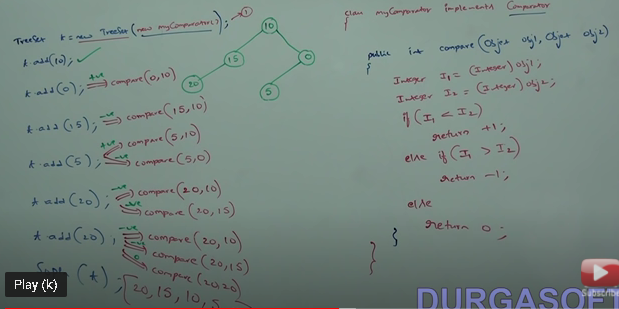 TreeSet t = new TreeSet(new myComparator()); → ①
t.add(10); ✓
t.add(0); +ve ⇒ compare(0,10)
t.add(15); -ve ⇒ compare(15,10)
t.add(5); +ve compare(5,10)
-ve compare(5,0)
t.add(20); -ve compare(20,10)
-ve compare(20,15)
t.add(20); -ve compare(20,10)
-ve compare(20,15)
0 compare(20,20)
(t);
[20, 15, 10, 5,
10
15
0
20
5
class myComparator implements Comparator
{
public int compare(Object obj1, Object obj2)
{
Integer I1 = (Integer) obj1;
Integer I2 = (Integer) obj2;
if (I1 < I2)
return +1;
else if (I1 > I2)
return -1;
else
return 0;
}
}
Play (k)
Subscribe
DURGASOFT